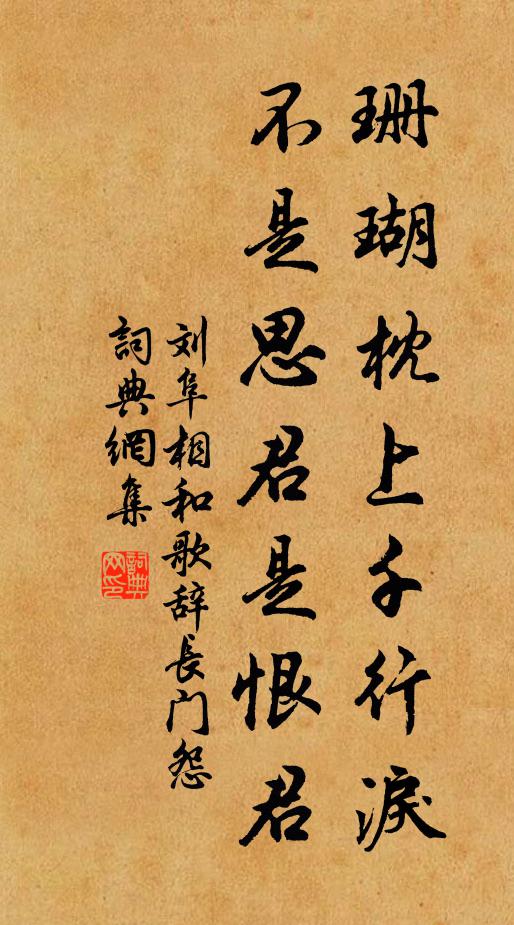 珊瑚枕上千行淚
不是思君是恨君
刘阜相和歌辞長门怨
詞典網集
詞典网印